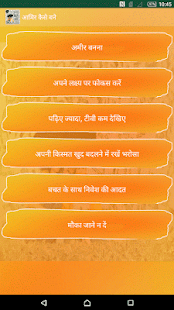 10:45
अमिर कैसे बने
अमीर बनना
अपने लक्ष्य पर फोकस करें
पढ़िए ज्यादा, टीवी कम देखिए
अपनी किस्मत खुद बदलने में रखें भरोसा
बचत के साथ निवेश की आदत
मौका जाने न दें